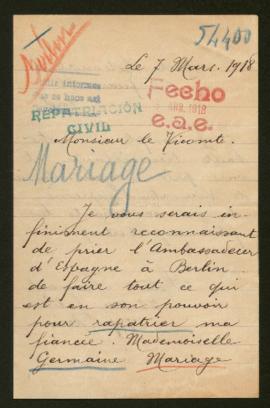 54400
Le 7 Mars. 1918
Fecho
1918
e.a.e.
REPATRIACIÓN
CIVIL
Monsieur le Vicomte.
Mariage
Je vous serais in-
finiment reconnaissant
de prier l'Ambassadeur
d'Espagne à Berlin
de faire tout ce qui
est en son pouvoir
pour rapatrier ma
fiancée. Mademoiselle
Germaine Mariage